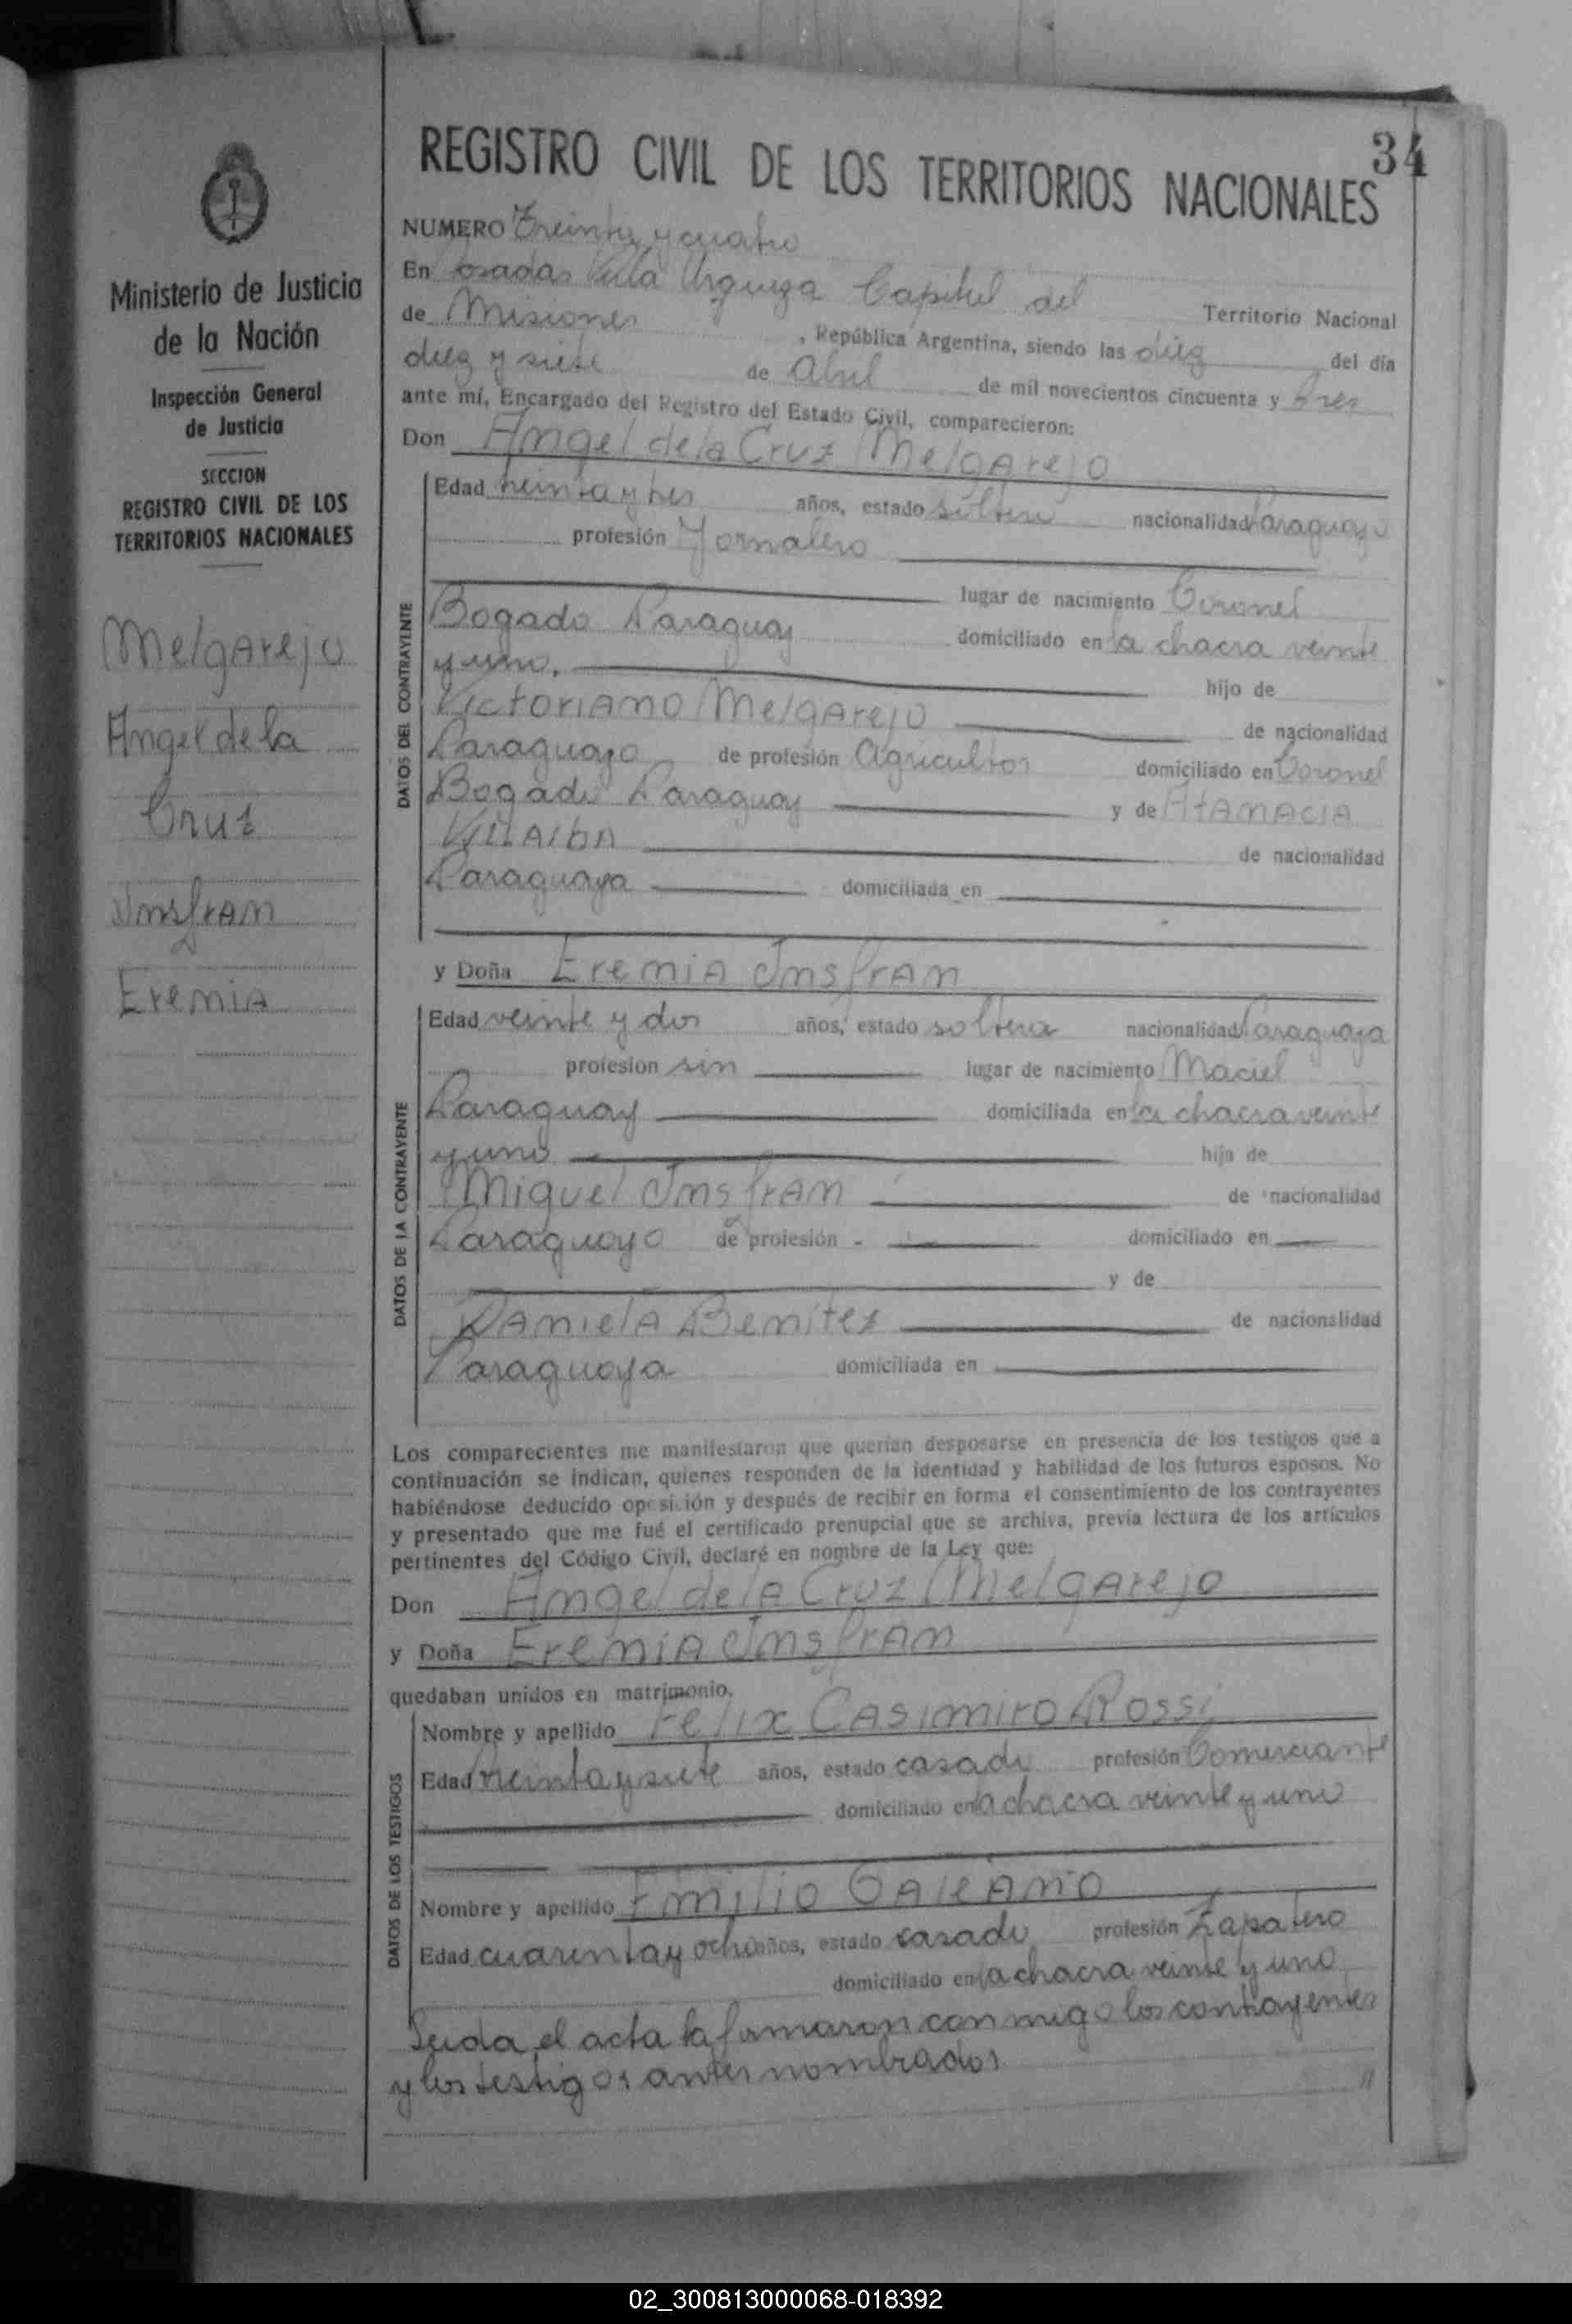 34
REGISTRO CIVIL DE LOS TERRITORIOS NACIONALES
Ministerio de Justicia
de la Nación
Inspección General
de Justicia
SECCION
REGISTRO CIVIL DE LOS
TERRITORIOS NACIONALES
Melgarejo
Angel de la
Cruz
Insfran
Eremia
NUMERO Treinta y cuatro
En Posadas Villa Urquiza Capital del Territorio Nacional
de Misiones, República Argentina, siendo las diez del día
diez y siete de Abril de mil novecientos cincuenta y tres
ante mí, Encargado del Registro del Estado Civil, comparecieron:
Don Angel de la Cruz Melgarejo
DATOS DEL CONTRAYENTE
Edad treinta y tres años, estado soltero nacionalidad Paraguayo
profesión Jornalero
lugar de nacimiento Coronel
Bogado Paraguay domiciliado en la chacra veinte
y uno. hijo de
Victoriano Melgarejo de nacionalidad
Paraguayo de profesión Agricultor domiciliado en Coronel
Bogado Paraguay y de Atanacia
Villalba de nacionalidad
Paraguaya domiciliada en
y Doña Eremia Insfran
DATOS DE LA CONTRAYENTE
Edad veinte y dos años, estado soltera nacionalidad Paraguaya
profesión sin lugar de nacimiento Maciel
Paraguay domiciliada en la chacra veinte
y uno hija de
Miguel Insfran de nacionalidad
Paraguayo de profesión - domiciliado en
y de
Daniela Benitez de nacionalidad
Paraguaya domiciliada en
Los comparecientes me manifestaron que querían desposarse en presencia de los testigos que a
continuación se indican, quienes responden de la identidad y habilidad de los futuros esposos. No
habiéndose deducido oposición y después de recibir en forma el consentimiento de los contrayentes
y presentado que me fué el certificado prenupcial que se archiva, previa lectura de los artículos
pertinentes del Código Civil, declaré en nombre de la Ley que:
Don Angel de la Cruz Melgarejo
y Doña Eremia Insfran
quedaban unidos en matrimonio.
DATOS DE LOS TESTIGOS
Nombre y apellido Felix Casimiro Rossi
Edad treinta y siete años, estado casado profesión Comerciante
domiciliado en la chacra veinte y uno
Nombre y apellido Emilio Galeano
Edad cuarenta y ocho años, estado casado profesión Zapatero
domiciliado en la chacra veinte y uno
Leida el acta la firmaron conmigo los contrayentes
y los testigos antes nombrados
02_300813000068-018392